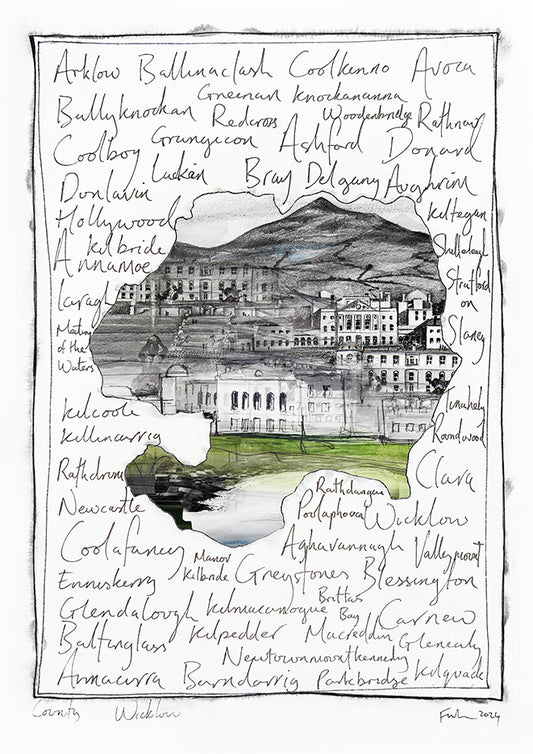 Arklow Ballinaclash Coolkenno Avoca
Greenan Knockananna
Ballyknockan Redcross Woodenbridge Rathnew
Coolboy Grangecon Ashford Donard
Lackan Bray Delgany Aughrim
Donlavin
Hollywood Kiltegan
Kilbride Shillelagh
Annamoe Stratford
on
Slaney
Laragh
Meeting
of the
Waters
Kilcoole Tinahely
Killincarrig Roundwood
Rathdrum Clara
Rathdangan
Newcastle Poolaphooca Wicklow
Coolafancy Aghavannagh Valleymount
Manor
Kilbride
Enniskerry Greystones Blessington
Glendalough Kilmacanogue Brittas
Bay Carnew
Baltinglass Kilpedder Macreddin Glenealy
Newtownmountkennedy
Annacurra Barndarrig Parkbridge Kilquade
County Wicklow
2024